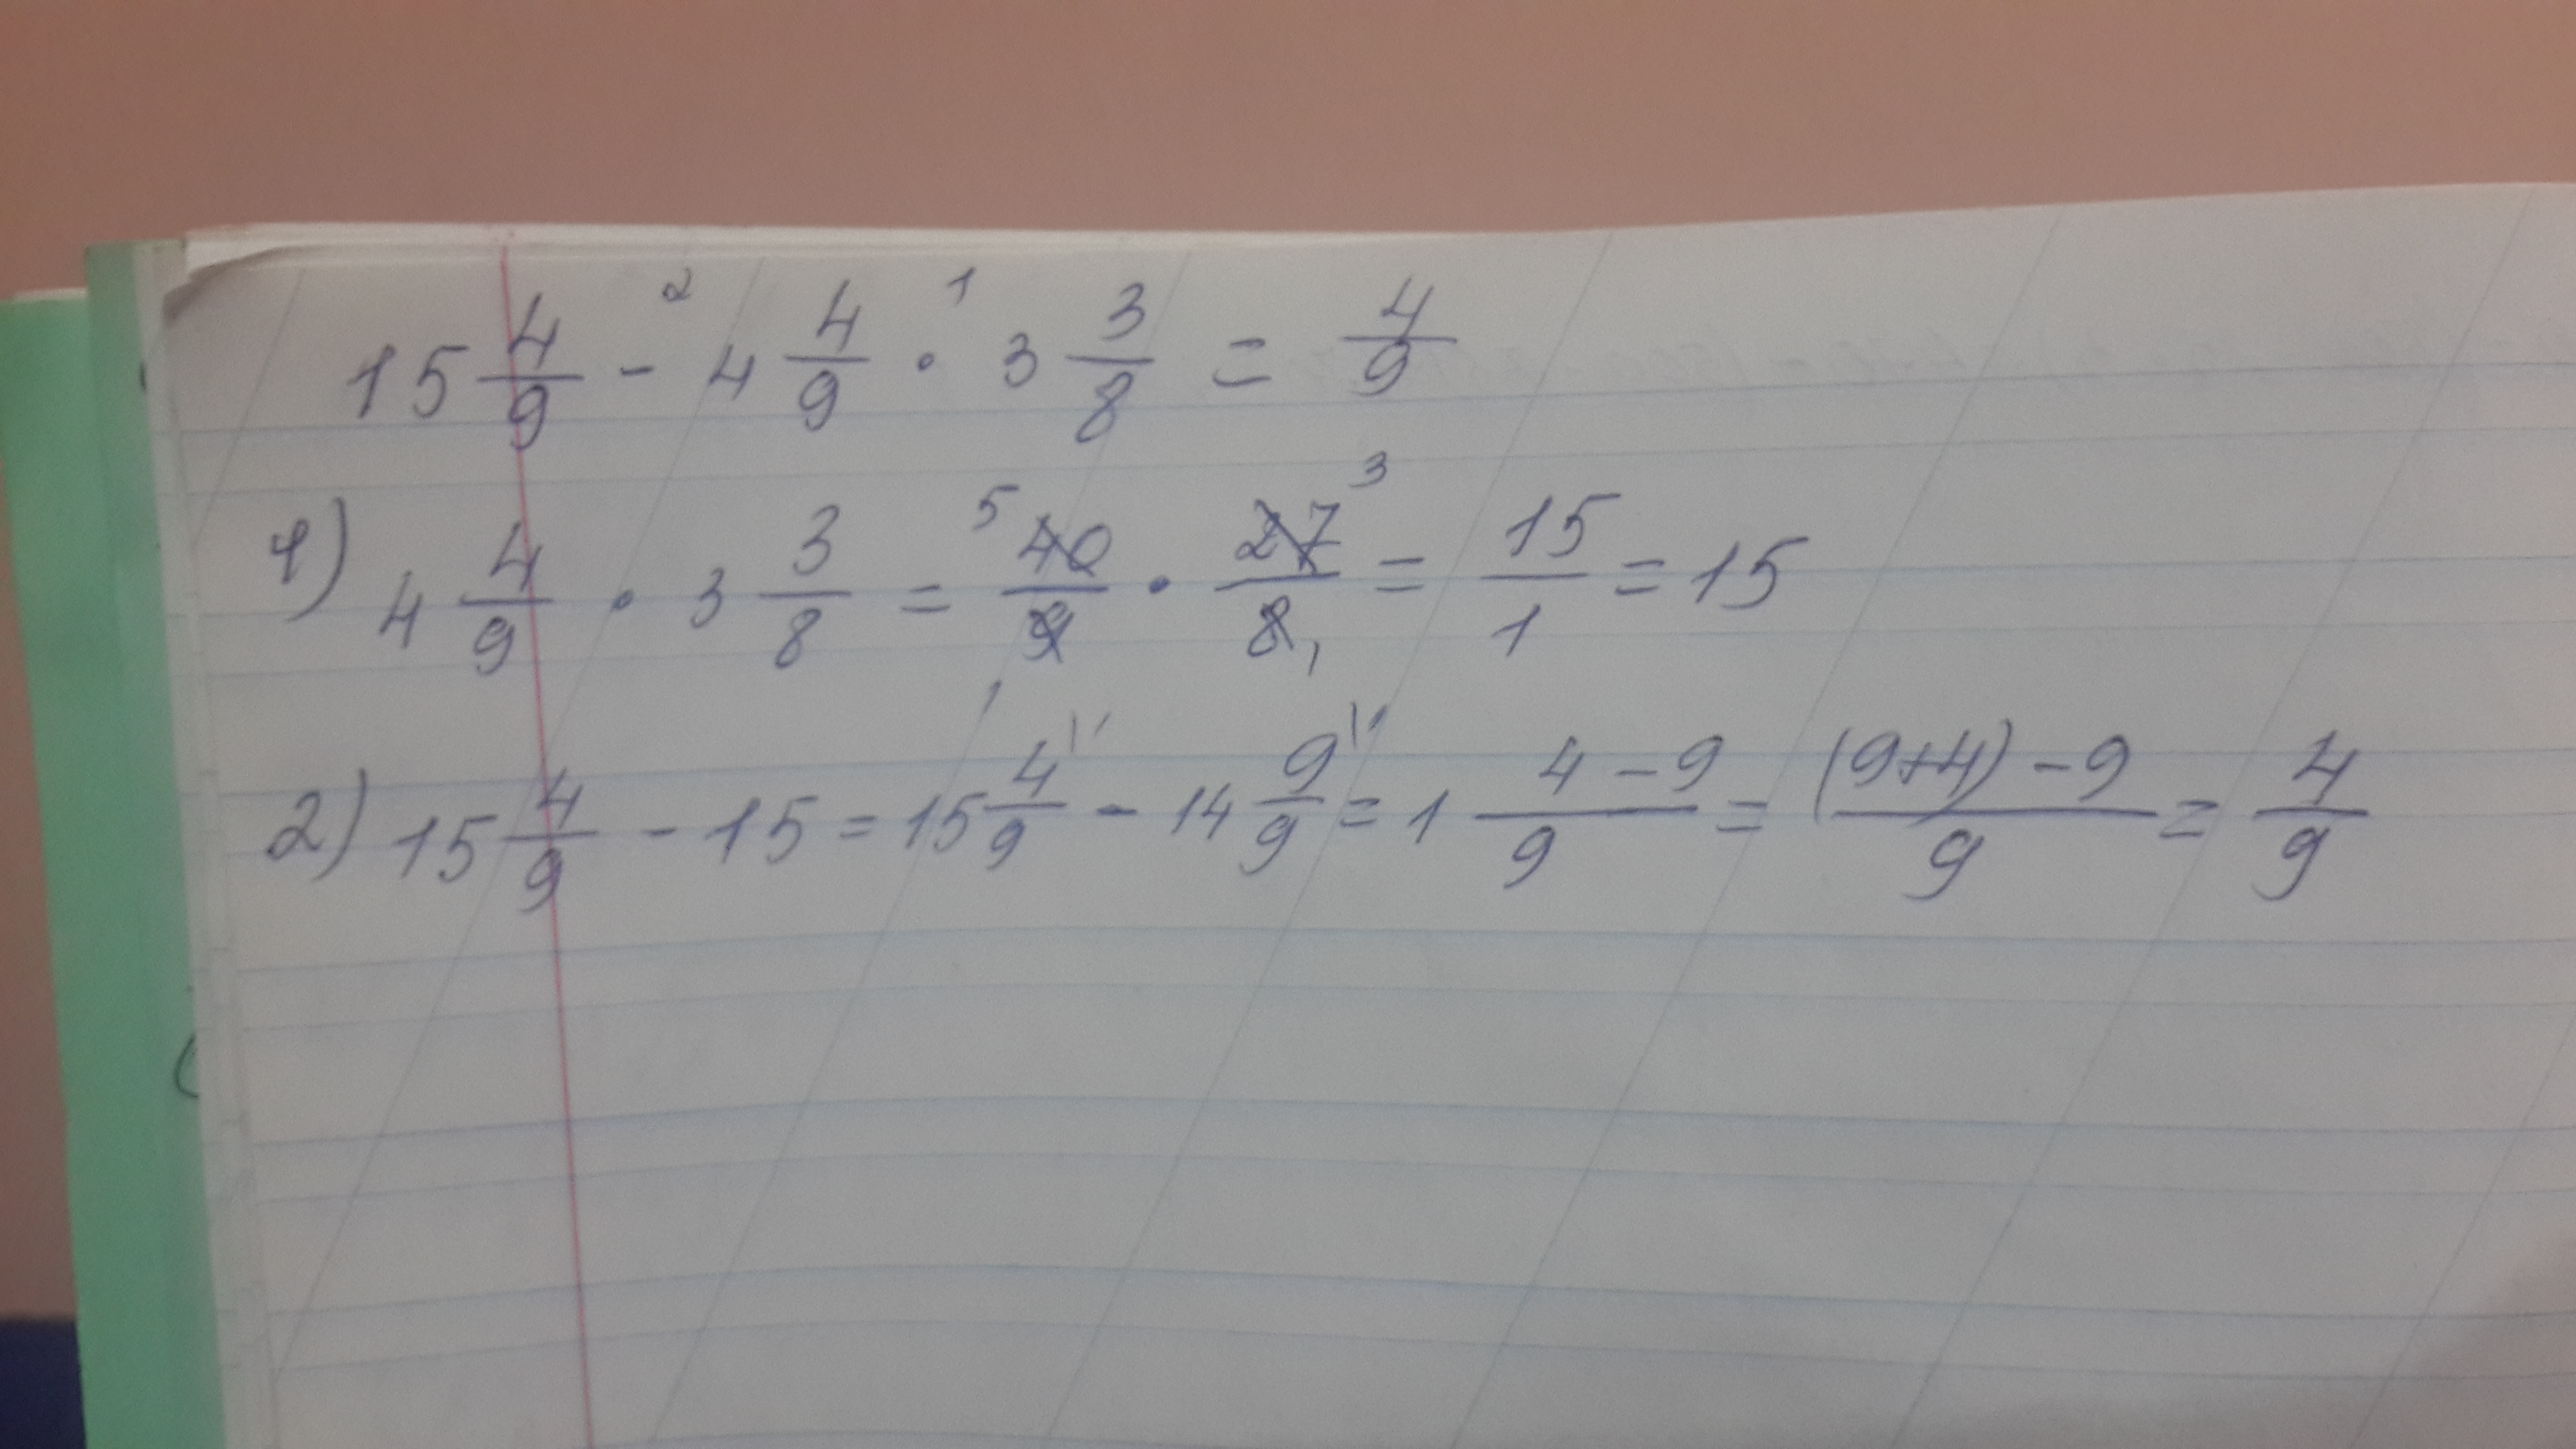 15 4/9 - ² 4 4/9 · ¹ 3 3/8 = 4/9
1) 4 4/9 · 3 3/8 = ⁵40/9₁ · 27³/8₁ = 15/1 = 15
2) 15 4/9 - 15 = 15 4\¹/9 - 14 9\¹/9 = 1 4-9/9 = (9+4)-9/9 = 4/9